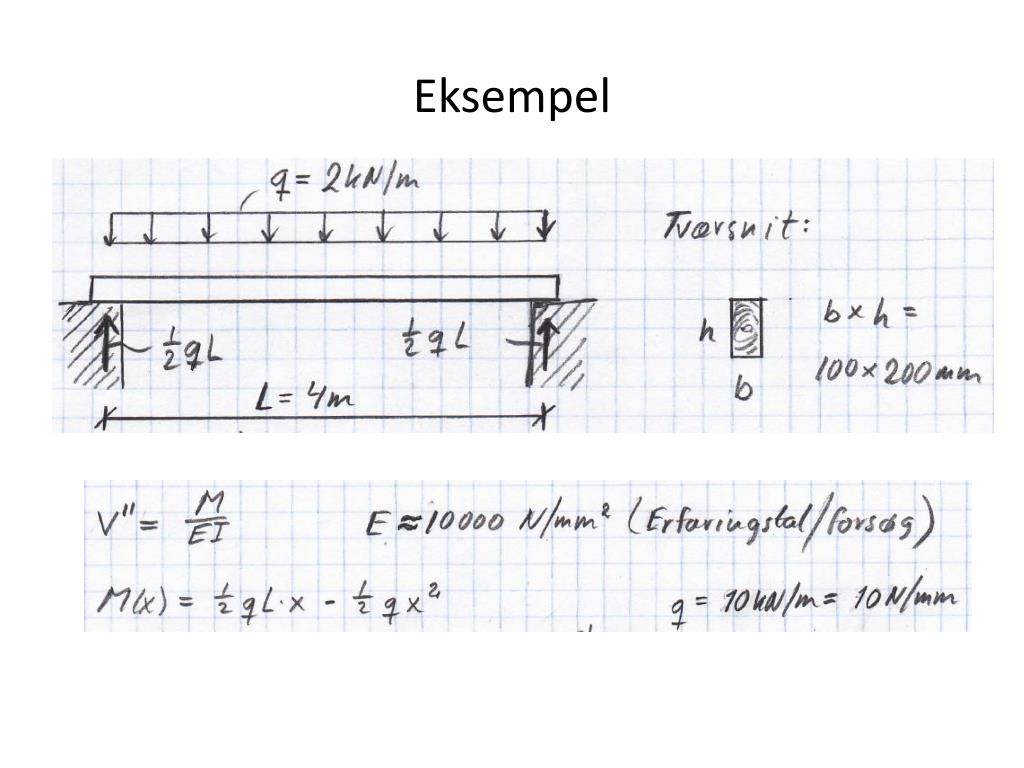 Eksempel
q = 2kN/m
Tværsnit:
½ q L
½ q L
h
b × h =
100 × 200 mm
b
L = 4m
V'' = M/EI
E ≈ 10000 N/mm² (Erfaringstal/forsøg)
M(x) = ½ q L · x - ½ q x²
q = 10 kN/m = 10 N/mm